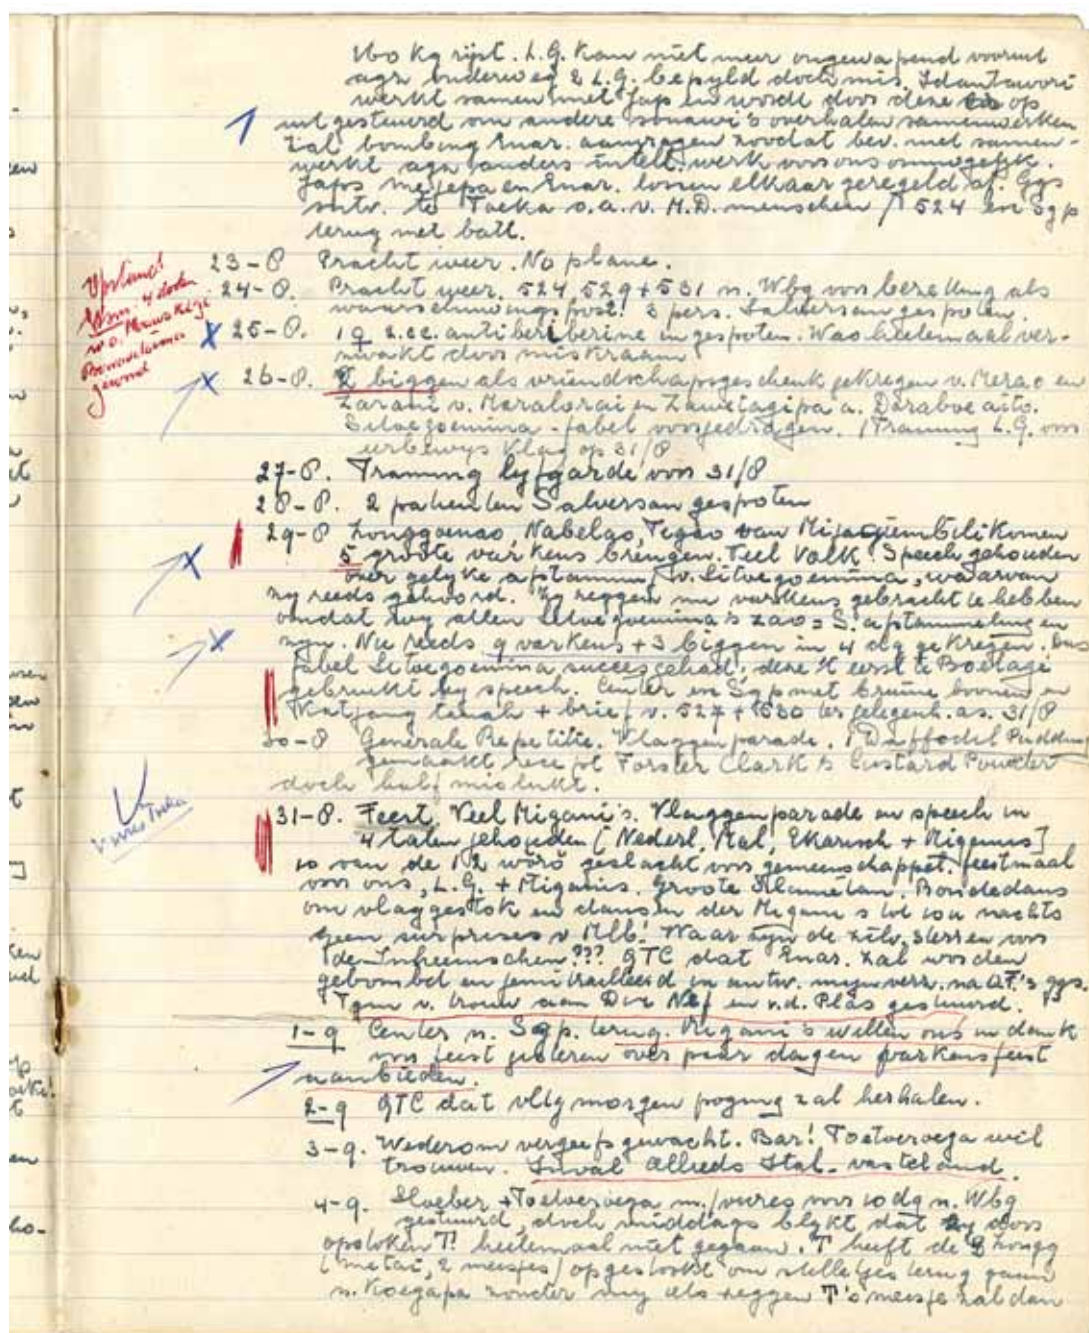 160 kg rijst. L.G. kan niet meer ongewapend vooruit
agz onderweg 2 L.G. bepyld doch mis.
werkt samen met Jap en wordt door deze er op
uit gestuurd om andere sonawi's overhalen samenwerken
Zal bombing Enar. aanvragen zoodat bev. met samen-
werkt agz anders intell. werk voor ons onmogelyk.
Japs en Enar. lossen elkaar geregeld af. Ggs
intv. te Toeka o.a. v. M.D. menschen / 524 en Sgp
terug met batt.
23-8 Pracht weer. No plane.
24-8. Pracht weer. 524 529 + 531 n. Wbg voor bezetting als
waarschuwingspost! 3 pers. Salversan gespoten.
25-8. 19 2.cc. antiberiberine ingespoten. Was heelemaal ver-
zwakt door miskraam
26-8. 2 biggen als vriendschapsgeschenk gekregen v. Merao en
Zarani v. Maralorai en Zawetagipa a. Daraboe aito.
Sitoegoemina-fabel voorgedragen. / Training L.G. voor
eerbewys vlag op 31/8
27-8. Training lyfgarde voor 31/8
28-8. 2 patienten Salversan gespoten
29-8 Zonggoenao, Nabelao, Tegao van komen
5 groote varkens brengen. Veel Volk. Speech gehouden
over gelyke afstamming v. Sitoegoemina, waarvan
zy reeds gehoord. Zy zeggen nu varkens gebracht te hebben
omdat wy allen Sitoegoemina's zao = S. afstammelingen
zyn. Nu reeds 9 varkens + 3 biggen in 4 dg gekregen. Dus
fabel Sitoegoemina succes gehad, deze 't eerst te Boetagi
gebruikt by speech. Center en Sgp met bruine boonen en
Katjang tanah + brief v. 527 + 530 ter gelegenh. as. 31/8
30-8 Generale Repetitie. Vlaggenparade. 1 Daffodil Pudding
gemaakt recept Forster Clark's Custard Powder
doch half mislukt.
31-8. Feest, Veel Migani's. Vlaggenparade en speech in
4 talen gehouden [Nederl, Mal, Ekarisch + Miganis]
10 van de 12 wörö geslacht voor gemeenschappel. feestmaal
voor ons, L.G. + Miganis. Groote Slametan. Rondedans
om vlaggestok en dansen der Migani's tot 10u nachts
geen surprises v Mlb! Waar zyn de zilv. sterren voor
de Infreemschen??? QTC dat Enar. zal worden
gebombd en gemitrailleerd in antw. myn verz. na QF.'s ggs.
Tgm v. trouw aan Dir Nef en v.d. Plas gestuurd.
1-9 Center n. Sgp. terug. Migani's willen ons in dank
voor feest gisteren over paar dagen varkensfeest
aanbieden.
2-9 QTC dat vlg morgen poging zal herhalen.
3-9. Wederom vergeefs gewacht. Bar! Toetoeroega wil
trouwen. Inval Allieds Ital. vasteland.
4-9. Sloeber + Toetoeroega m/vivres voor 10 dg n. Wbg
gestuurd, doch middags blykt dat zy door
opstoken T! heelemaal niet gegaan. T heeft de 3 Zongg
(metai, 2 meisjes) opgestookt om stelletjes terug gaan
n. Koegapa zonder my iets zeggen T's meisje zal dan
Opstand!
4 doden
gewond
vivres Toeka